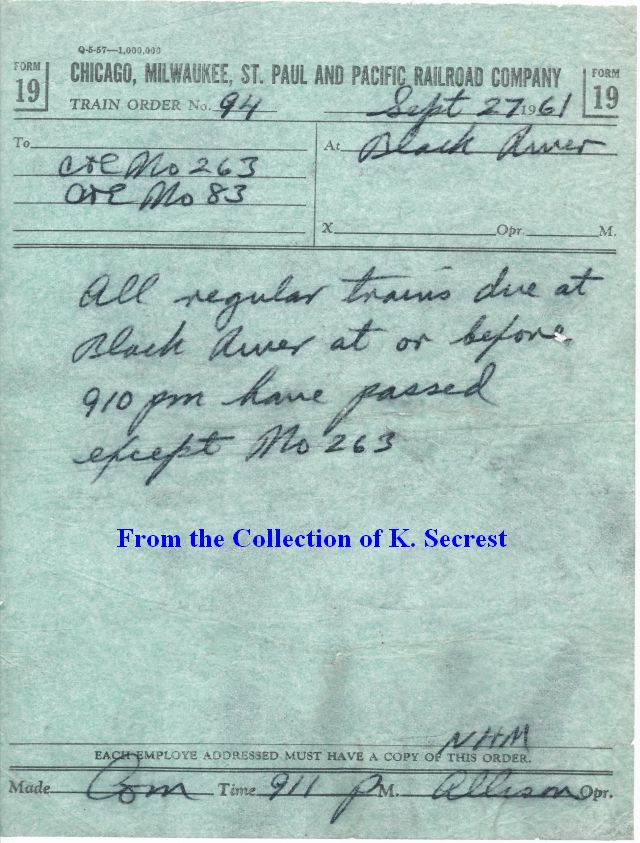 Q-5-57—1,000,000
FORM 19
CHICAGO, MILWAUKEE, ST. PAUL AND PACIFIC RAILROAD COMPANY
FORM 19
TRAIN ORDER No. 94 Sept 27 1961
To
C&E No 263
C&E No 83
At Black River
X Opr. M.
All regular trains due at
Black River at or before
910 pm have passed
except No 263
From the Collection of K. Secrest
NHM
EACH EMPLOYE ADDRESSED MUST HAVE A COPY OF THIS ORDER.
Made Com Time 911 P M. Allison Opr.